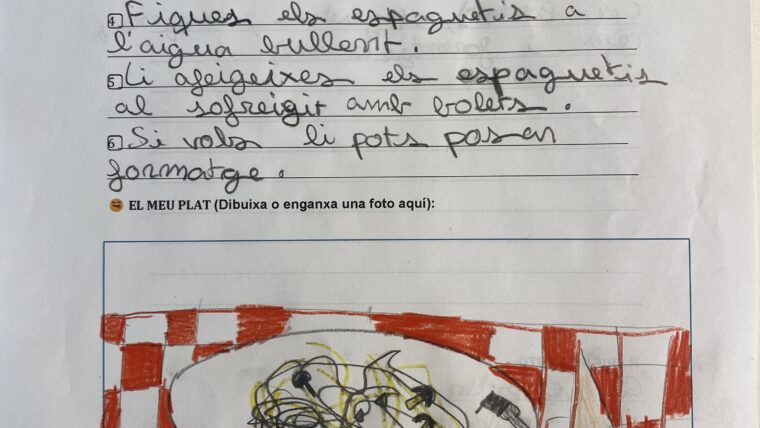 4 Fiques els espaguetis a
l'aigua bullent.
5 Li afeigeixes els espaguetis
al sofreigit amb bolets.
6 Si vols li pots posar
formatge.
EL MEU PLAT (Dibuixa o enganxa una foto aquí):